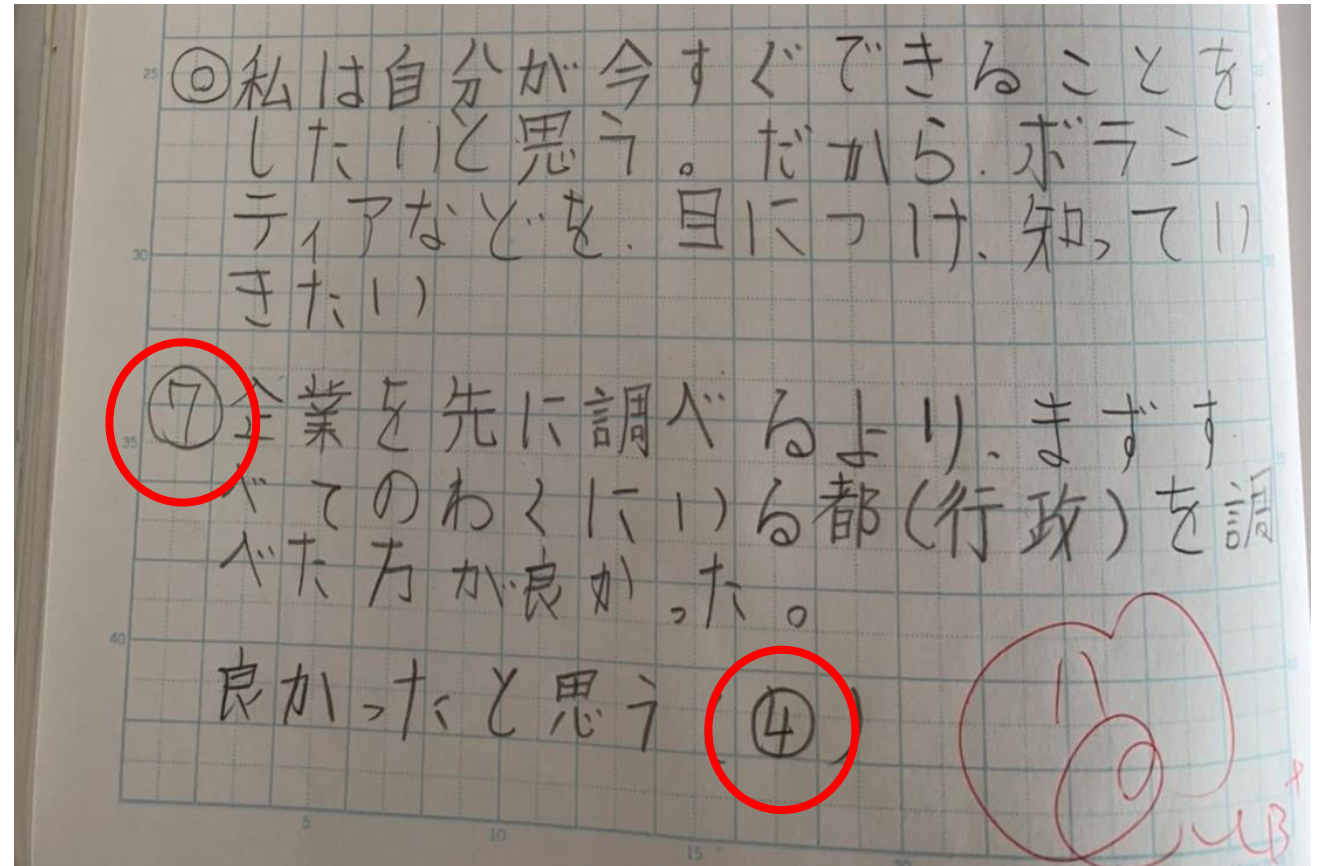 25 ◎私は自分が今すぐできることを
したいと思う。だから、ボラン
ティアなどを、目につけ、知ってい
30
きたい
⑦企業を先に調べるより、まずす
35
べてのわくにいる都(行政)を調
べた方が良かった。
40
良かったと思う(④)
B+
5 10 15 20